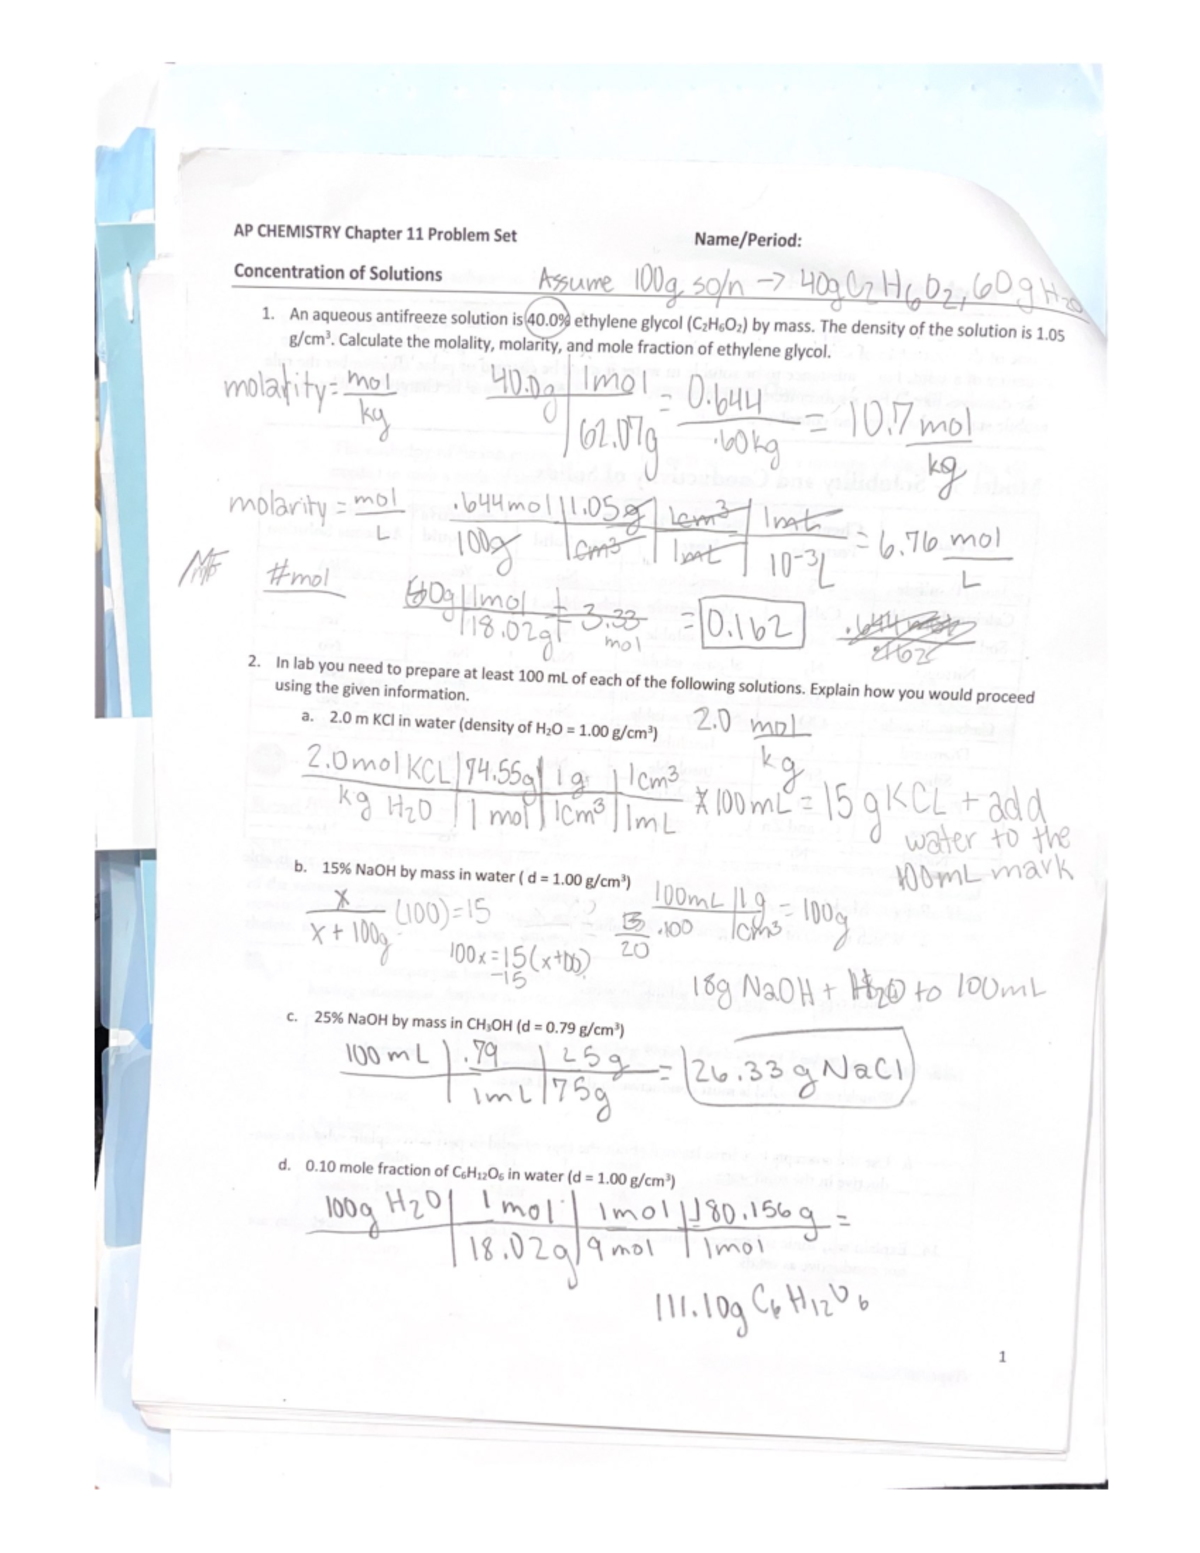 AP CHEMISTRY Chapter 11 Problem Set Name/Period:
Concentration of Solutions Assume 100g soln → 40g C2H6O2, 60g H2O
1. An aqueous antifreeze solution is 40.0% ethylene glycol (C₂H₆O₂) by mass. The density of the solution is 1.05
g/cm³. Calculate the molality, molarity, and mole fraction of ethylene glycol.
molarity = mol/kg 40.0g | 1mol / 62.07g = 0.644 / .60kg = 10.7 mol/kg
molarity = mol/L .644mol | 1.05g | 1cm³ | 1mL / 100g | 1cm³ | 1mL | 10⁻³L = 6.76 mol/L
#mol 60g | 1mol / 18.02g = 3.33 mol = 0.162
2. In lab you need to prepare at least 100 mL of each of the following solutions. Explain how you would proceed
using the given information.
a. 2.0 m KCl in water (density of H₂O = 1.00 g/cm³) 2.0 mol/kg
2.0mol KCL | 74.55g | 1g | 1cm³ / kg H2O | 1 mol | 1cm³ | 1mL × 100mL = 15g KCL + add
water to the
100mL mark
b. 15% NaOH by mass in water ( d = 1.00 g/cm³)
x / x + 100g (100) = 15 100mL | 1g / cm³ = 100g
100x = 15(x+100)
-15
18g NaOH + H2O to 100mL
c. 25% NaOH by mass in CH₃OH (d = 0.79 g/cm³)
100 mL | .79 | 25g / 1mL | 75g = 26.33 g NaCl
d. 0.10 mole fraction of C₆H₁₂O₆ in water (d = 1.00 g/cm³)
100g H2O | 1 mol | 1mol | 180.156g / 18.02g | 9 mol | 1mol =
111.10g C6H12O6
1